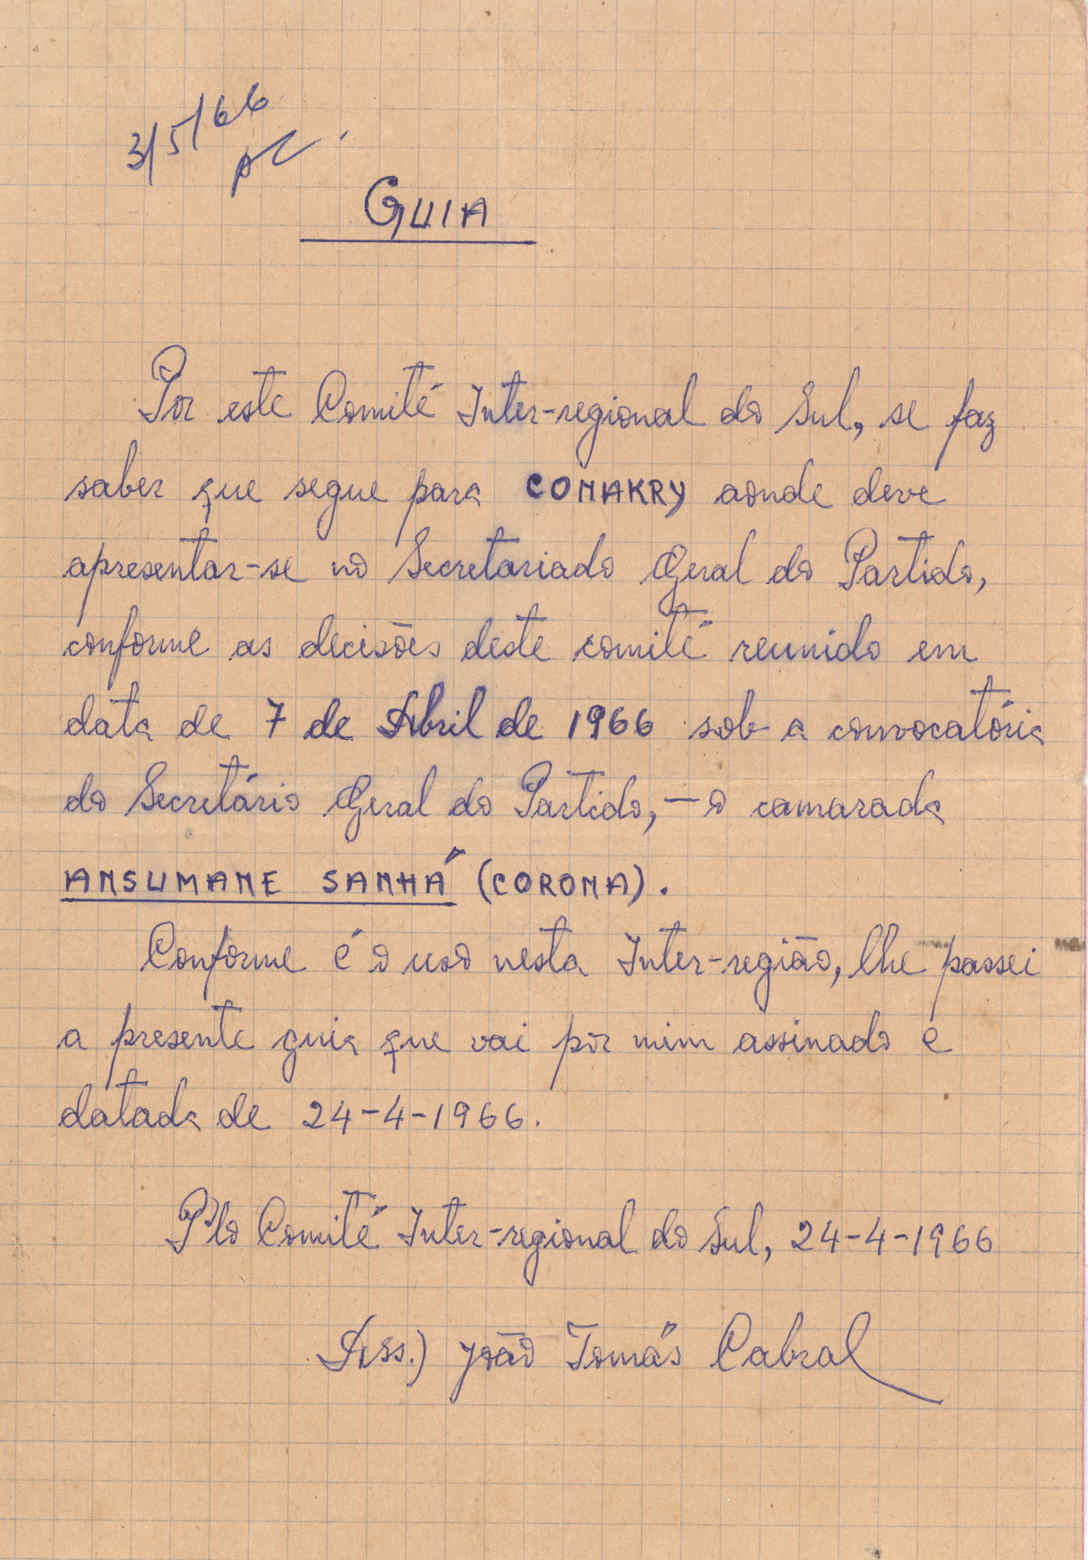 3/5/66
GUIA
Por este Comité Inter-regional do Sul, se faz
saber que segue para CONAKRY aonde deve
apresentar-se no Secretariado Geral do Partido,
conforme as decisões deste comité reunido em
data de 7 de Abril de 1966 sob a convocatória
do Secretário Geral do Partido, — o camarada
ANSUMANE SANHÁ (CORONA).
Conforme é o uso nesta Inter-região, lhe passei
a presente guia que vai por mim assinado e
datada de 24-4-1966.
P'lo Comité Inter-regional do Sul, 24-4-1966
Ass.) João Tomás Cabral